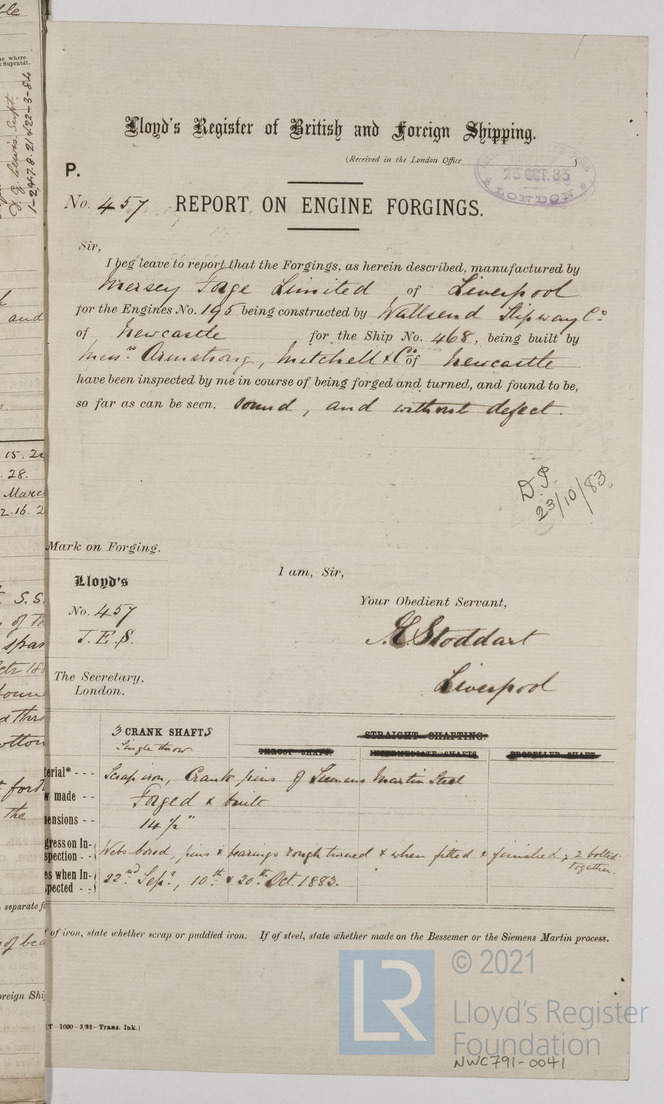 Lloyd's Register of British and Foreign Shipping.
(Received in the London Office
23 OCT. 83
LONDON
P.
No. 457 REPORT ON ENGINE FORGINGS.
Sir,
I beg leave to report that the Forgings, as herein described, manufactured by
Mersey Forge Limited of Liverpool
for the Engines No. 195 being constructed by Wallsend Slipway Co.
of Newcastle for the Ship No. 468, being built by
Messrs. Armstrong, Mitchell & Co. of Newcastle
have been inspected by me in course of being forged and turned, and found to be,
so far as can be seen, sound, and without defect.
D.P.
23/10/83.
Mark on Forging.
Lloyd's
No. 457
I am, Sir,
Your Obedient Servant,
Stoddart
Liverpool
The Secretary,
London.
3 CRANK SHAFTS
Single throw
STRAIGHT SHAFTING.
THRUST SHAFT.
INTERMEDIATE SHAFTS
PROPELLER SHAFT.
terial* - - - Scrap iron, Crank pins of Siemens Martin Steel
w made - - Forged & built
ensions - - 14 1/2"
gress on In-
spection - - Webs bored, pins & bearings rough turned & when fitted & finished & 2 bolted together.
es when In-
spected - - 22nd Sepr., 10th & 20th Oct. 1883.
of iron, state whether scrap or puddled iron. If of steel, state whether made on the Bessemer or the Siemens Martin process.
T-1000-3/82-Trans. Ink.)
LR
© 2021
Lloyd's Register
Foundation
NWC791-0041